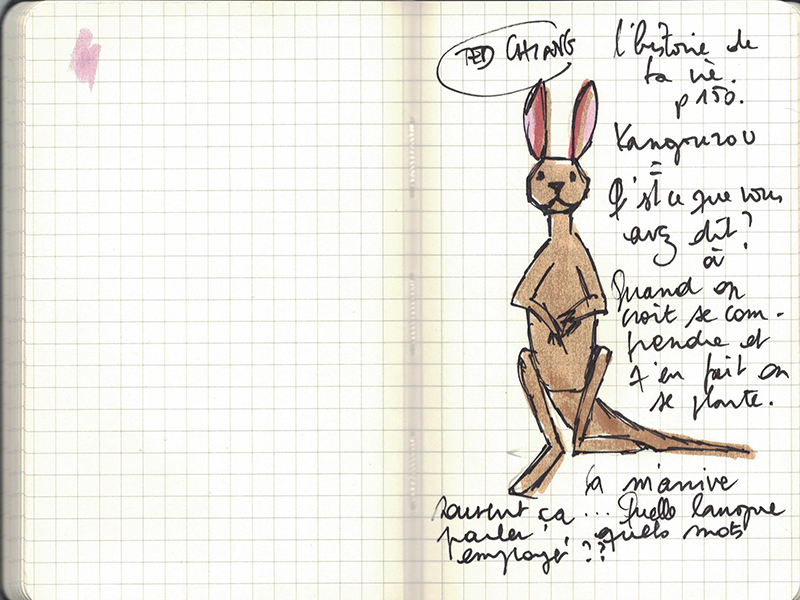 TED CHIANG
l'histoire de
ta vie.
p 150.
Kangourou
=
Q'est ce que vous
avez dit?
Quand on
croit se com-
prendre et
q'en fait on
se plante.
Ça m'arrive
souvent ça ... Quelle langue
parler, quels mots
employer ??